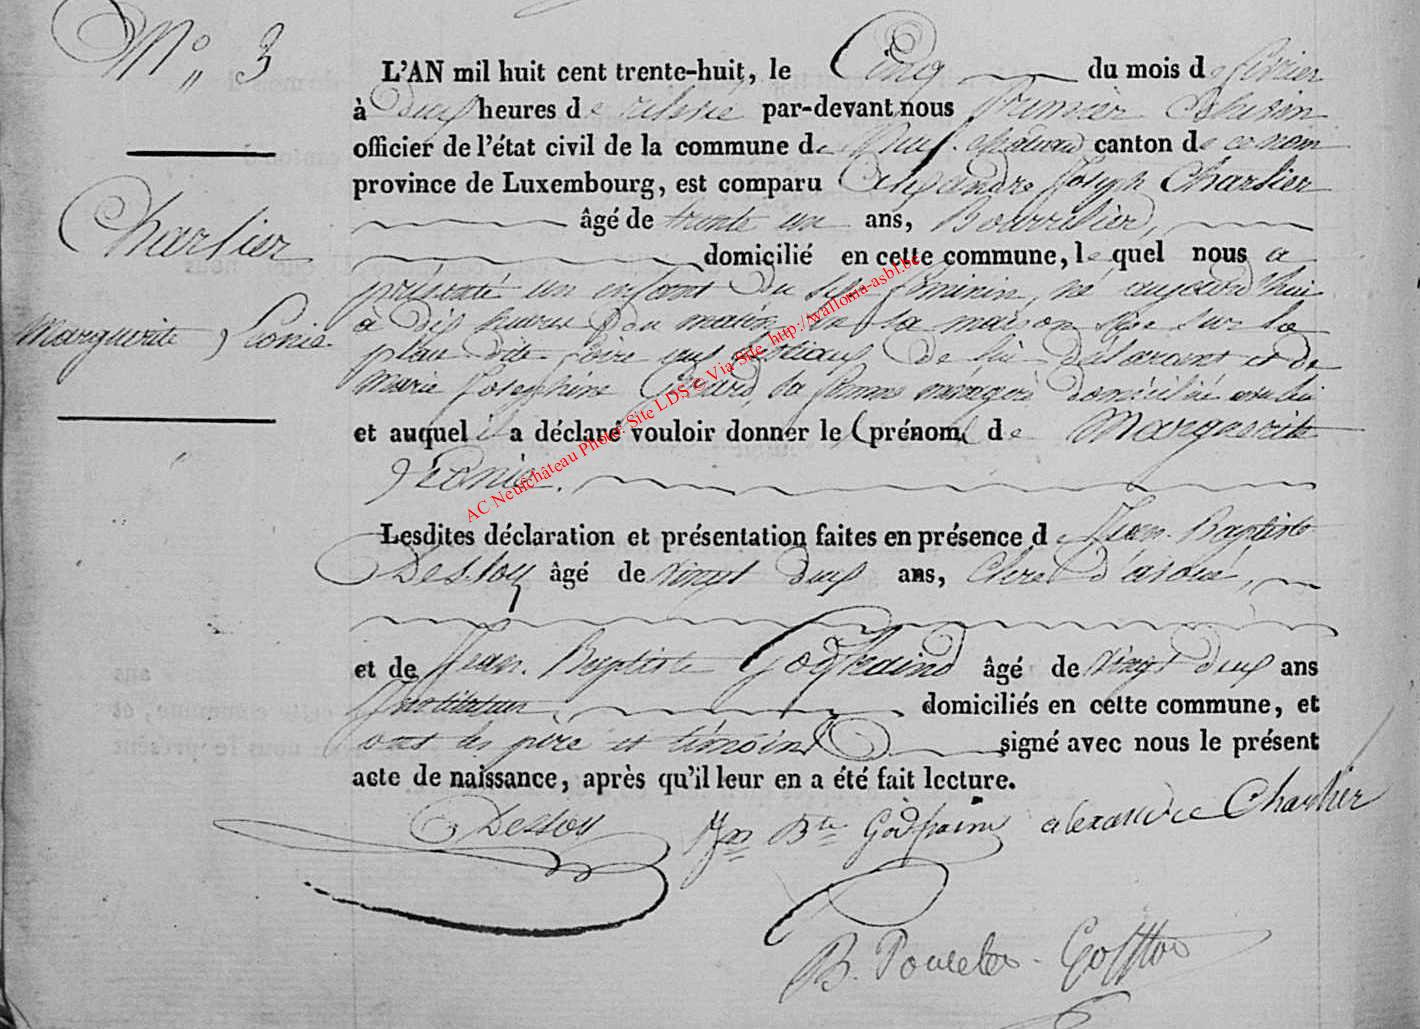 N° 3
L'AN mil huit cent trente-huit, le Cinq du mois de février
à deux heures de relevée par-devant nous Premier Echevin
officier de l'état civil de la commune de Neufchateau canton de ce nom
province de Luxembourg, est comparu Alexandre Joseph Charlier
âgé de trente un ans, Bourrelier,
domicilié en cette commune, lequel nous a
présenté un enfant du sexe féminin, né aujourd'hui
à dix heures du matin en sa maison sise sur la
place dite foire aux bestiaux de lui déclarant et de
Marie Josephine Gérard, sa femme ménagère domiciliée avec lui
et auquel il a déclaré vouloir donner le (prénom) de Marguerite
Léonie.
Charlier
Marguerite Léonie
Lesdites déclaration et présentation faites en présence de Jean Baptiste
Dessoy âgé de vingt deux ans, Clerc d'avoué,
et de Jean Baptiste Godfraind âgé de vingt deux ans
Instituteur, domiciliés en cette commune, et
ont les père et témoins signé avec nous le présent
acte de naissance, après qu'il leur en a été fait lecture.
Dessoy Jn Bte Godfraind alexandre Charlier
B. Poncelet
AC Neufchâteau Photo: Site LDS © Via Site http://wallonia-asbl.be